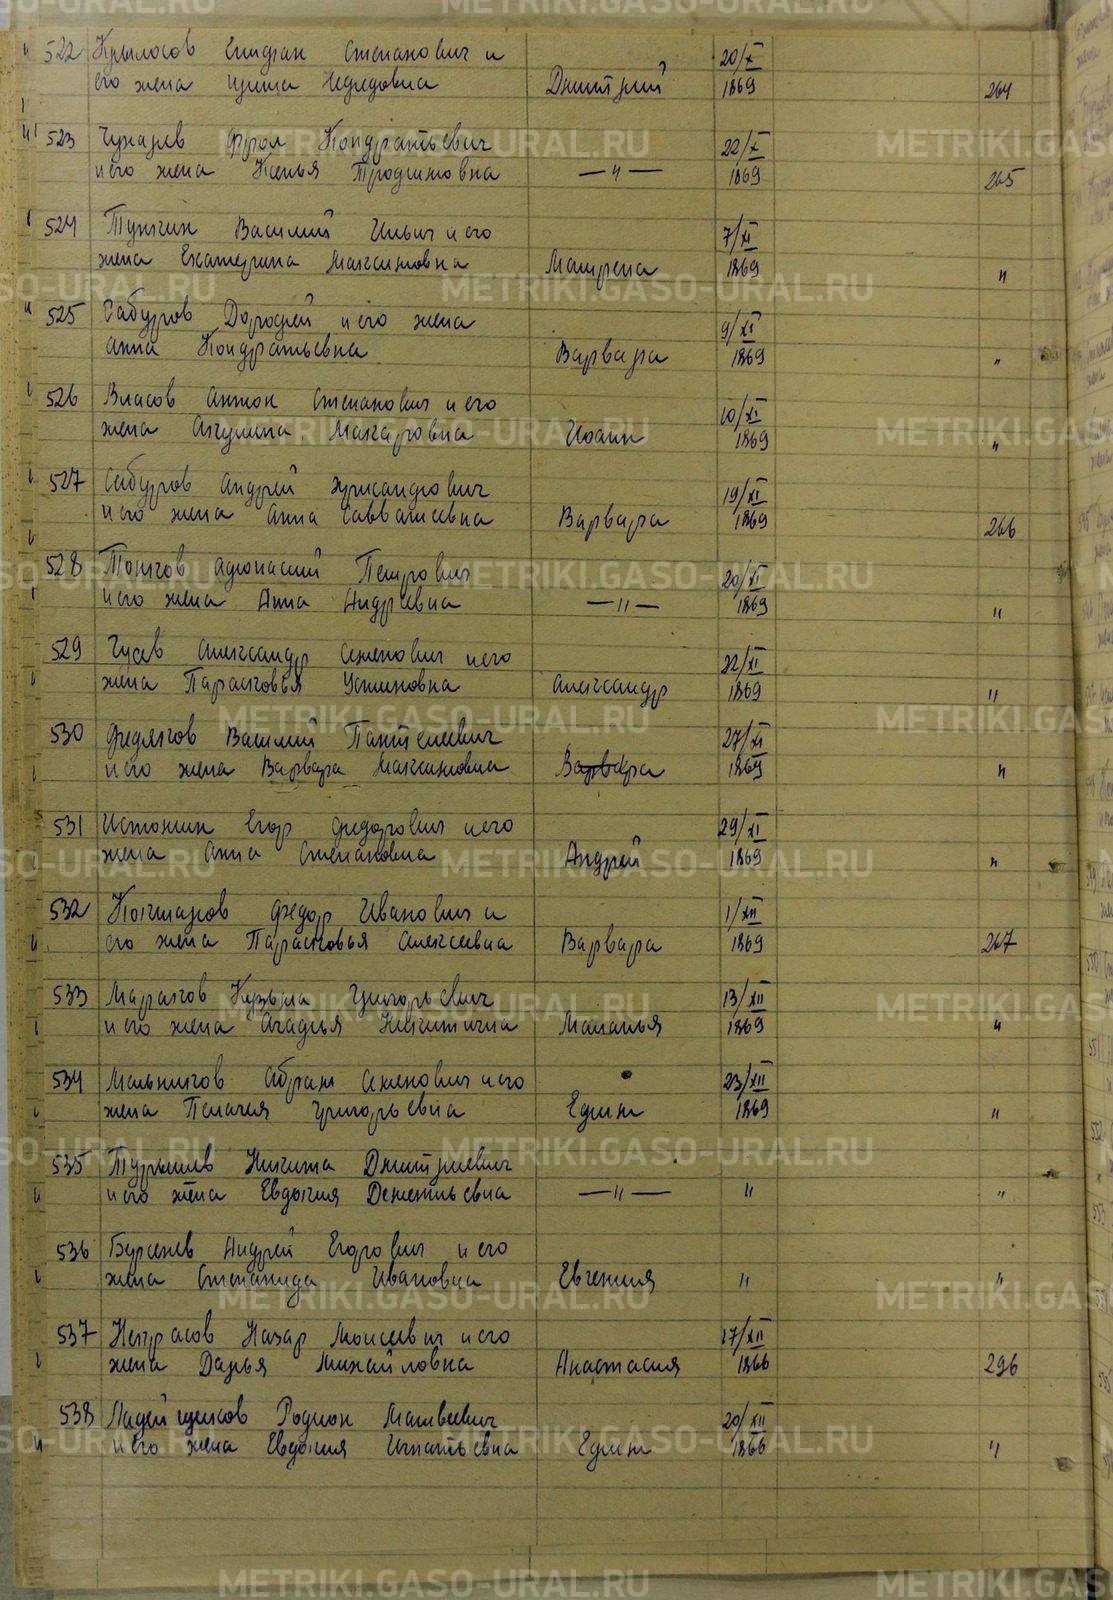 522 Крылосов Епифан Степанович и 20/X
его жена Ирина Нефедовна Дмитрий 1869 264
523 Чухарев Фрол Кондратьевич 22/X
и его жена Ксенья Трофимовна —"— 1869 265
524 Василий Ильич и его 7/XI
жена Екатерина Максимовна Матрена 1869 "
525 Сабуров Дорофей и его жена 9/XI
Анна Кондратьевна Варвара 1869 "
526 Власов Антон Степанович и его 10/XI
жена Акулина Макаровна Иоанн 1869 "
527 Сабуров Андрей Хрисанфович 19/XI
и его жена Анна Савватеевна Варвара 1869 266
528 Афонасий Петрович 20/XI
и его жена Анна Андреевна —"— 1869 "
529 Гусев Александр Семенович и его 22/XI
жена Парасковья Устиновна Александр 1869 "
530 Федяков Василий Пантелеевич 27/XI
и его жена Варвара Максимовна Варвара 1869 "
531 Истомин Егор Федорович и его 29/XI
жена Анна Степановна Андрей 1869 "
532 Кокшаров Федор Иванович и 1/XII
его жена Парасковья Алексеевна Варвара 1869 267
533 Кузьма Григорьевич 13/XII
и его жена Агафья Никитична Маланья 1869 "
534 Мельников Абрам Семенович и его 23/XII
жена Пелагея Григорьевна Ефим 1869 "
535 Никита Дмитриевич
и его жена Евдокия Дементьевна —"— " "
536 Бурсенев Андрей Егорович и его
жена Степанида Ивановна Евгения " "
537 Некрасов Назар Моисеевич и его 17/XII
жена Дарья Михайловна Анастасия 1866 296
538 Ладейщиков Родион Матвеевич 20/XII
и его жена Евдокия Игнатьевна Ефим 1866 "
METRIKI.GASO-URAL.RU